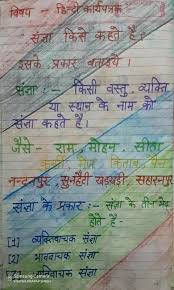 विषय - हिन्दी कार्यपत्रक
संज्ञा किसे कहते है?
इसके प्रकार बताइये ।
संज्ञा :- किसी वस्तु, व्यक्ति
या स्थान के नाम को
संज्ञा कहते है।
जैसे - राम, मोहन, सीता
कुर्सी मेज किताब पेन
नन्दनपुर, सुनहैटी खड़खड़ी, सहारनपुर
संज्ञा के प्रकार :- संज्ञा के तीन भेद
होते है -
[1] व्यक्तिवाचक संज्ञा
[2] भाववाचक संज्ञा
[3] जातिवाचक संज्ञा
Samsung Camera